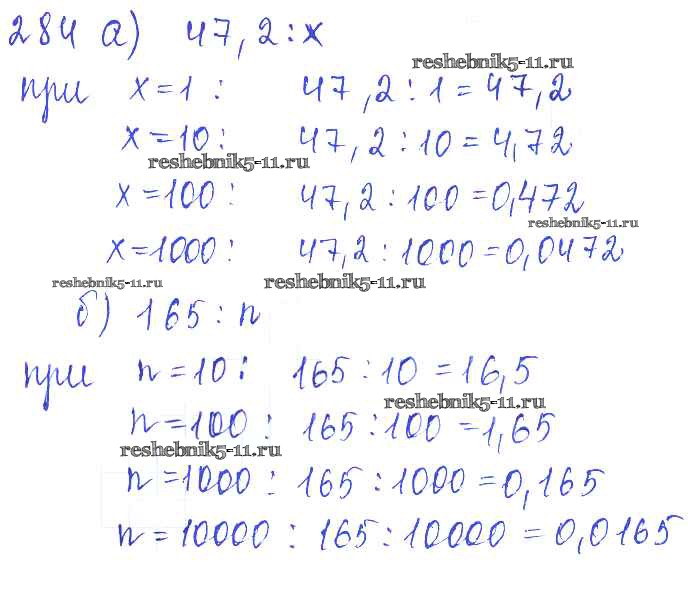 284 а) 47,2 : x
reshebnik5-11.ru
при x = 1 : 47,2 : 1 = 47,2
x = 10 : 47,2 : 10 = 4,72
reshebnik5-11.ru
x = 100 : 47,2 : 100 = 0,472
reshebnik5-11.ru
x = 1000 : 47,2 : 1000 = 0,0472
reshebnik5-11.ru reshebnik5-11.ru
б) 165 : n
при n = 10 : 165 : 10 = 16,5
reshebnik5-11.ru
n = 100 : 165 : 100 = 1,65
reshebnik5-11.ru
n = 1000 : 165 : 1000 = 0,165
n = 10000 : 165 : 10000 = 0,0165